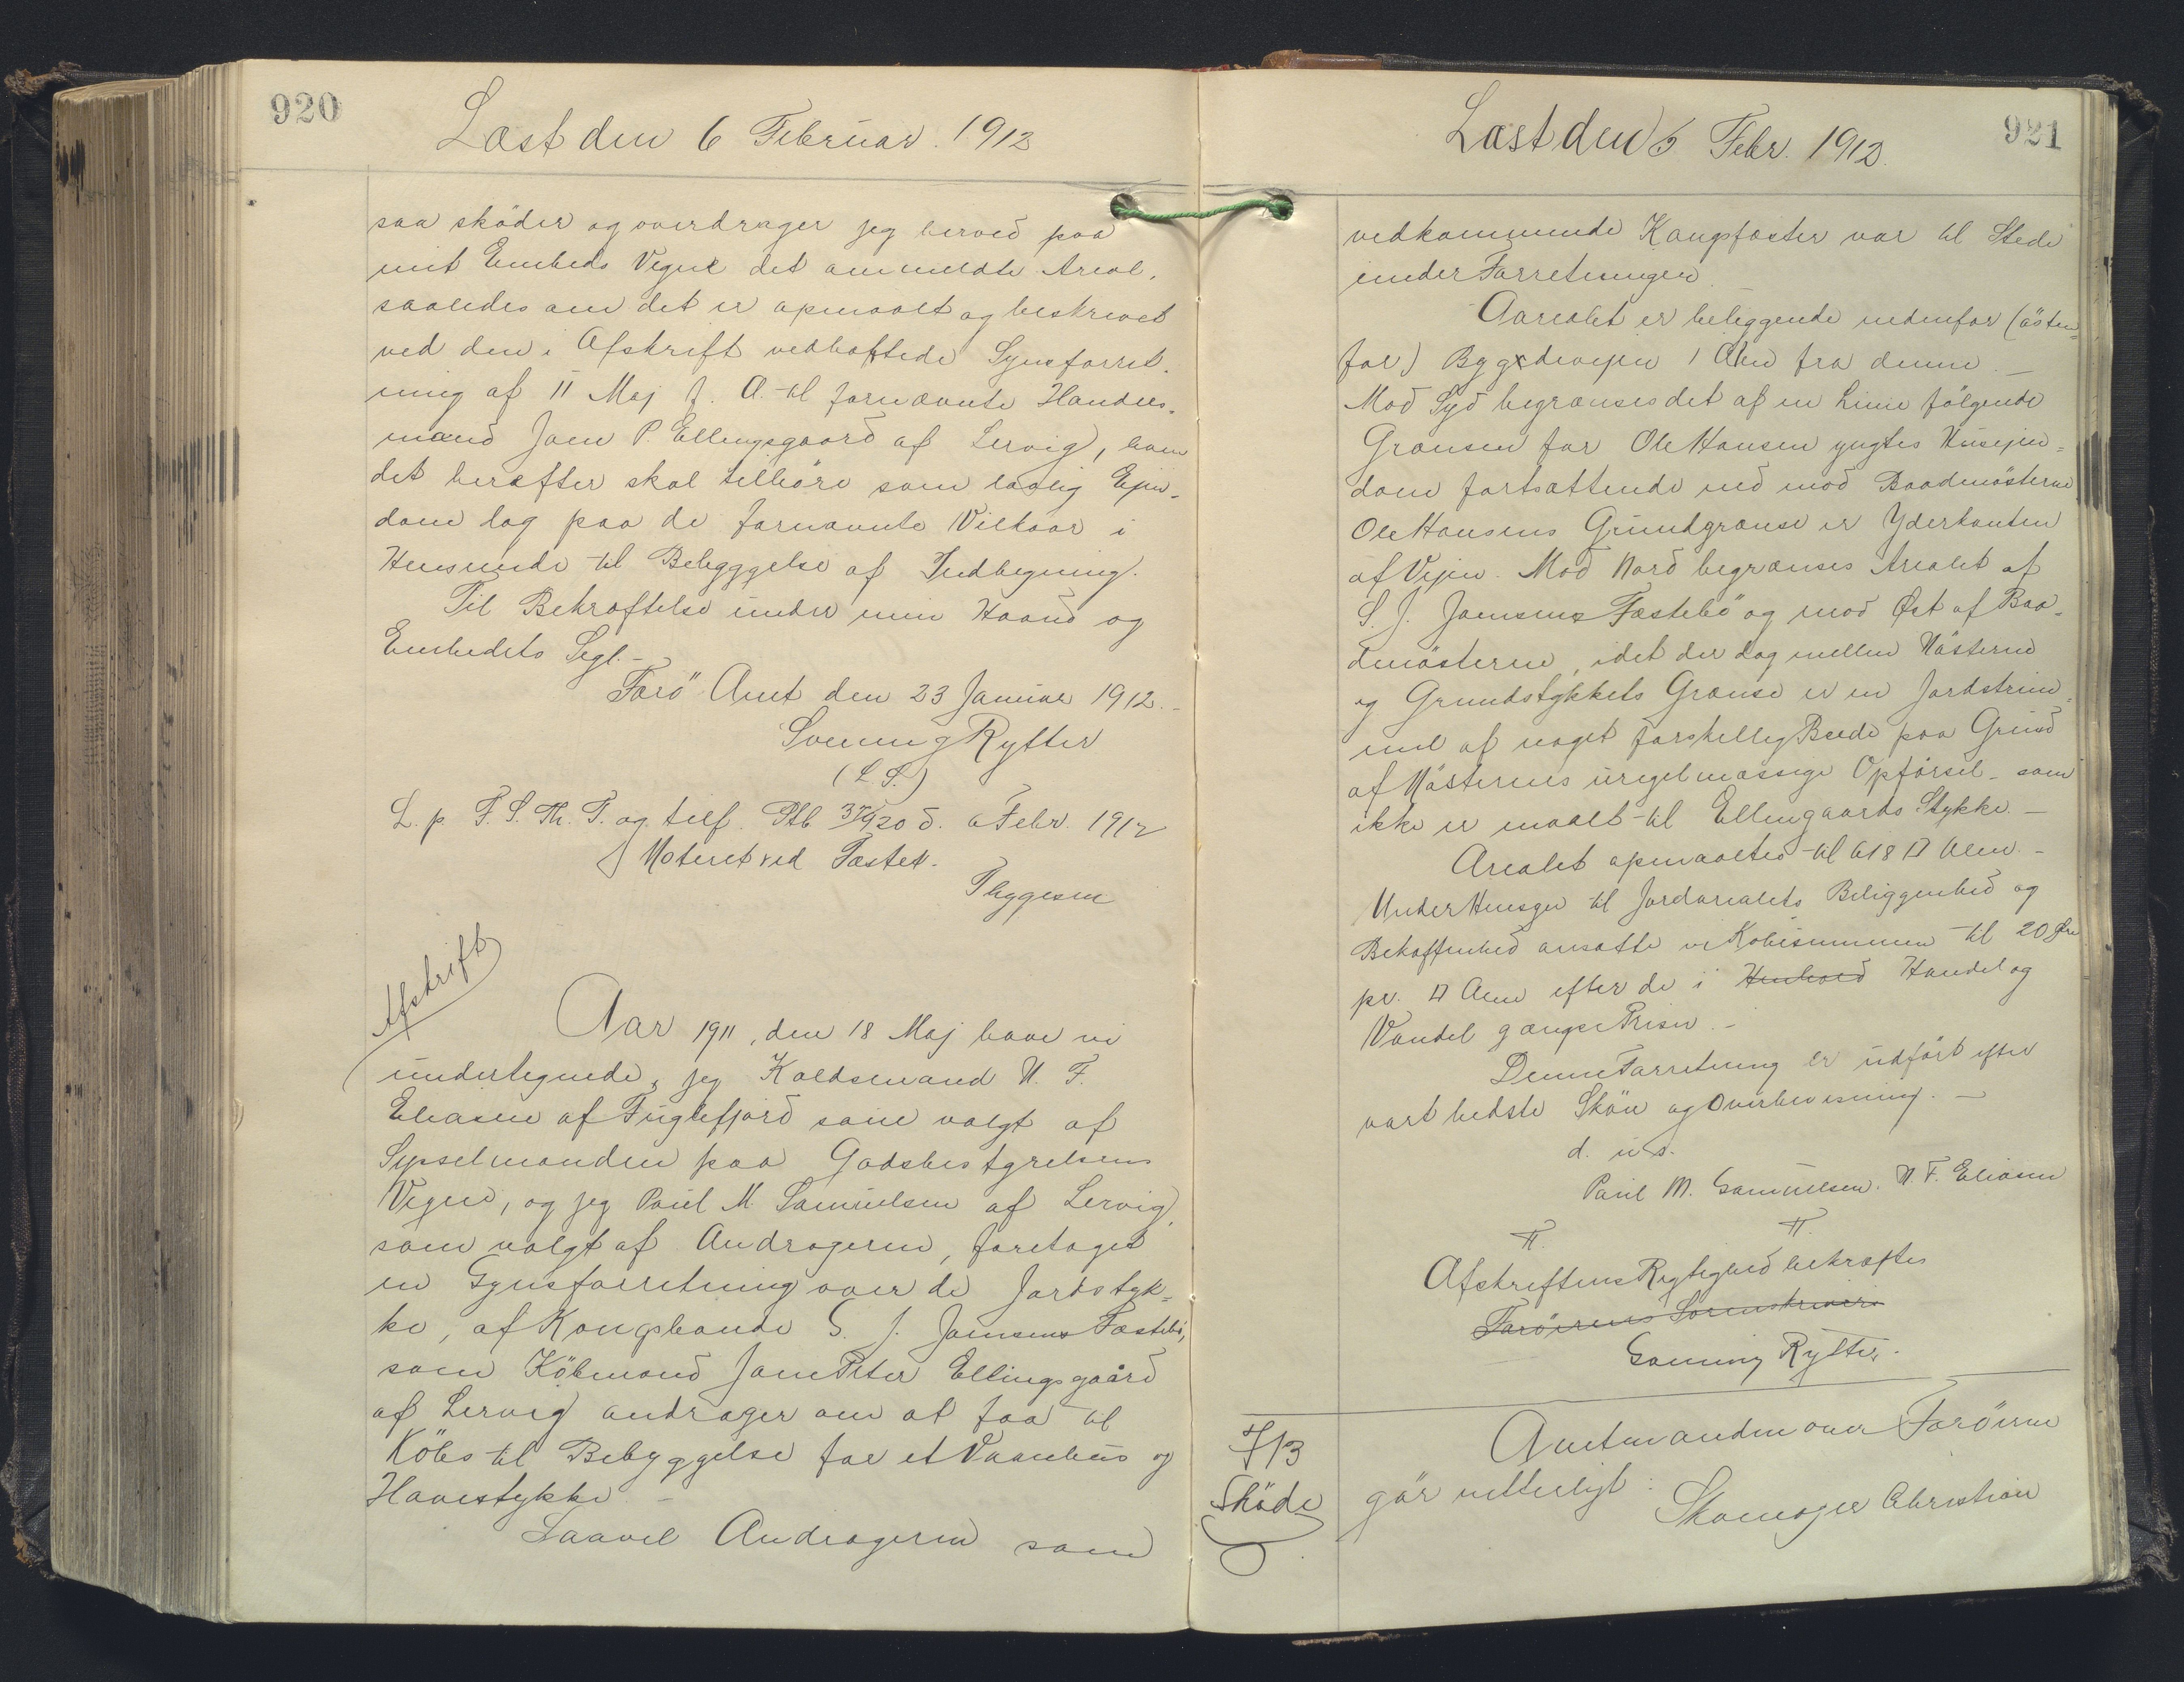 920
Læst den 6 Februar. 1912
saa sköder og overdrager jeg herved paa
mit Embeds Vegne det anmeldte Areal,
saaledes om det er opmaalt og beskrevet
ved den i Afskrift vedhæftede Synsforret-
ning af 11 Maj f. A. til fornævnte Handels-
mand Joen P. Ellingsgaard af Lervig, hvem
det herefter skal tilhöre som lovlig Ejen-
dom dog paa de fornævnte Vilkaar i
Henseende til Beliggelse af Indhegning.
Til Bekræftelse under min Haand og
Embedets Segl. -
Færö Amt den 23 Januar 1912. -
Svenning Rytter
(L. S.)
L. p. F. S. Th. T. og tilf. Ptb d. 6 Febr. 1912
Noteret ved Fæstet.
Thygesen
Afskrift
Aar 1911, den 18 Maj have vi
undertegnede, jeg Kaldsmand N. F.
Eliasen af Fuglefjord som valgt af
Sysselmanden paa Godsbestyrelsens
Vegne, og jeg Poul M Samuelsen af Lervig,
som valgt af Andrageren, foretaget
en Synsforretning over de Jordstyk=
ke, af Kongsbonde S. J. Joensens Fæstebö,
som Köbmand Joen Peter Ellingsgaard
af Lervig andrager om at faa til
Köbs til Bebyggelse for et Vaanhus og
Havestykke -
Saavel Andrageren som
921
Læst den 6 Febr. 1912.
vedkommende Kongsfæster var til Stede
under Forretningen.
Aarealet er beliggende nedenfor (östen=
for) Bygdevejen 1 Alen fra denne. -
Mod Syd begrænses det af en Linie fölgende
Grænsen for Ole Hansen yngtes Husejen=
dom fortsættende ned mod Baadnösterne
Ole Hansens Grundgrænse er Yderkanten
af Vejen. Mod Nord begrænses Arealet af
S. J. Joensens Fæstebö og mod Øst af Baa-
dnösterne, idet der dog mellem Nösterne
og Grundstykkets Grænse er en Jordstrim=
mel af noget forskellig Brede paa Grund
af Nösternes uregelmæssige Opförsel - som
ikke er maalt til Ellingaards Stykke. -
Arealet opmaaltes til 618 □ Alen. -
Under Hensyn til Jordarealets Beliggenhed og
Bekaffenhed ansatte vi Köbesummen til 20 Øre
pr. □ Alen efter de i Henhold Handel og
Vandel gængse Priser. -
Denne Forretning er udfört efter
vort bedste Skön og Overbevisning. -
d. u. s.
Poul M. Samuelsen. N. F. Eliasen
Afskriftens Rigtighed bekræftes
Færöernes Sorenskriveri
Svenning Rytter.
7/3
Sköde
Amtmanden over Færöerne
gör vitterligt:
Skomager Christian